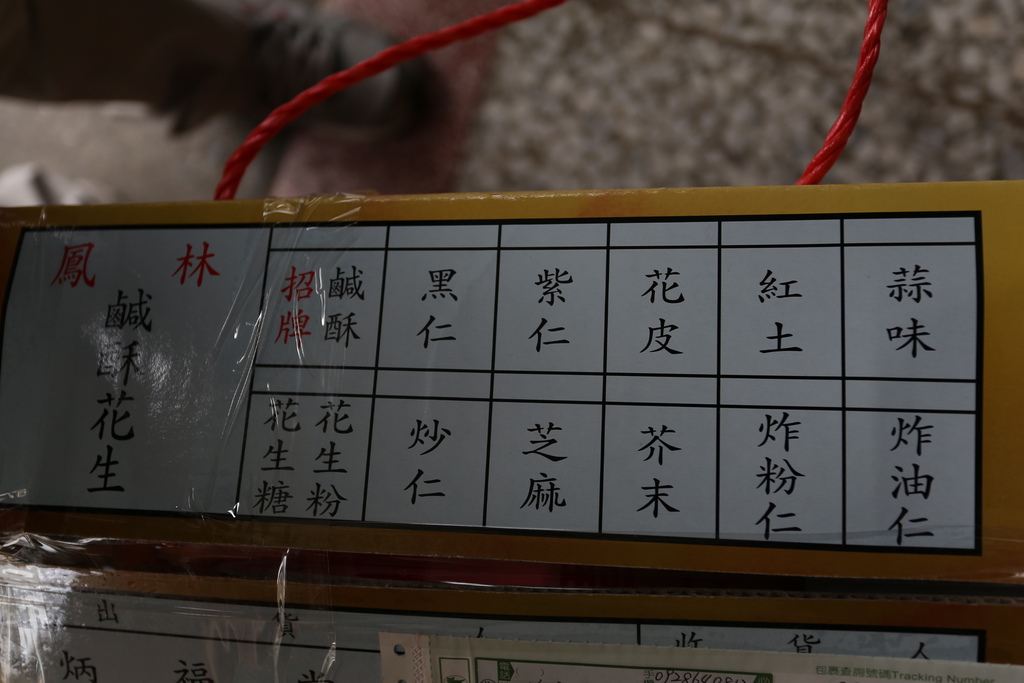 鳳林
鹹酥花生
招牌
鹹酥
黑仁
紫仁
花皮
紅土
蒜味
花生糖
花生粉
炒仁
芝麻
芥末
炸粉仁
炸油仁
出貨人
收貨人
炳福
包裹查詢號碼Tracking Number